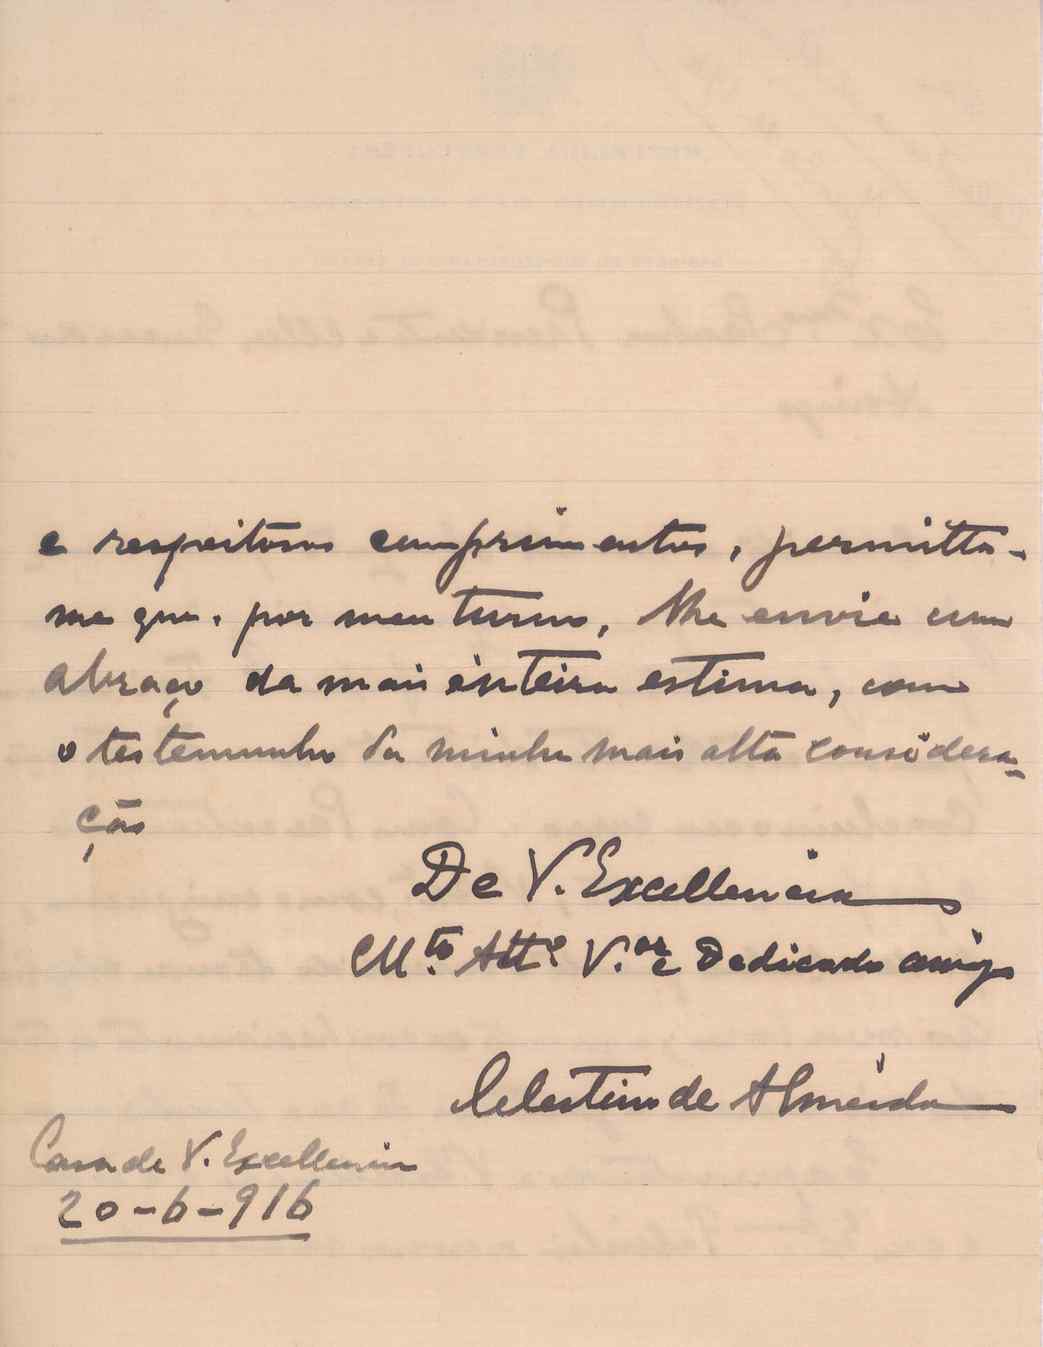 e respeitosos cumprimentos, permitta-
me que, por meu turno, lhe envie um
abraço da mais inteira estima, com
o testemunho da minha mais alta considera-
ção
De V. Excellencia
Mto. Atto. V.or e Dedicado amigo
Celestino de Almeida
Casa de V. Excellencia
20-6-916